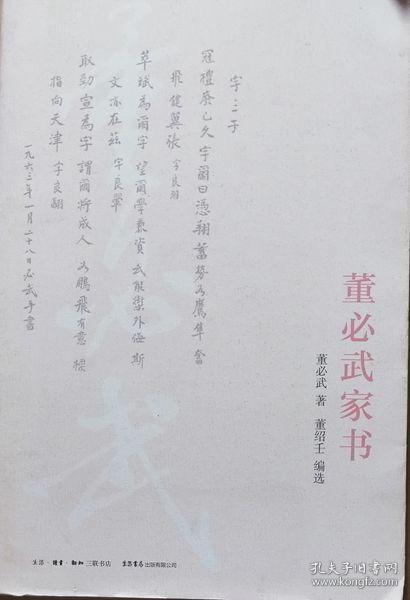 董必武家书
董必武 著 董绍壬 编选
字三子
冠禮廢已久 字爾曰憑翔 蓄勢為鷹隼 奮
飛健翼張 字良羽
萃斌為爾字 望爾學兼資 武能禦外侮 斯
文亦在茲 字良翬
取勁宣為字 謂爾將成人 如鵬飛有意 標
指向天津 字良翮
一九六三年一月二十八日必武手書
生活·讀書·新知 三联书店 生活書店出版有限公司
孔夫子旧书网
www.kongfz.com